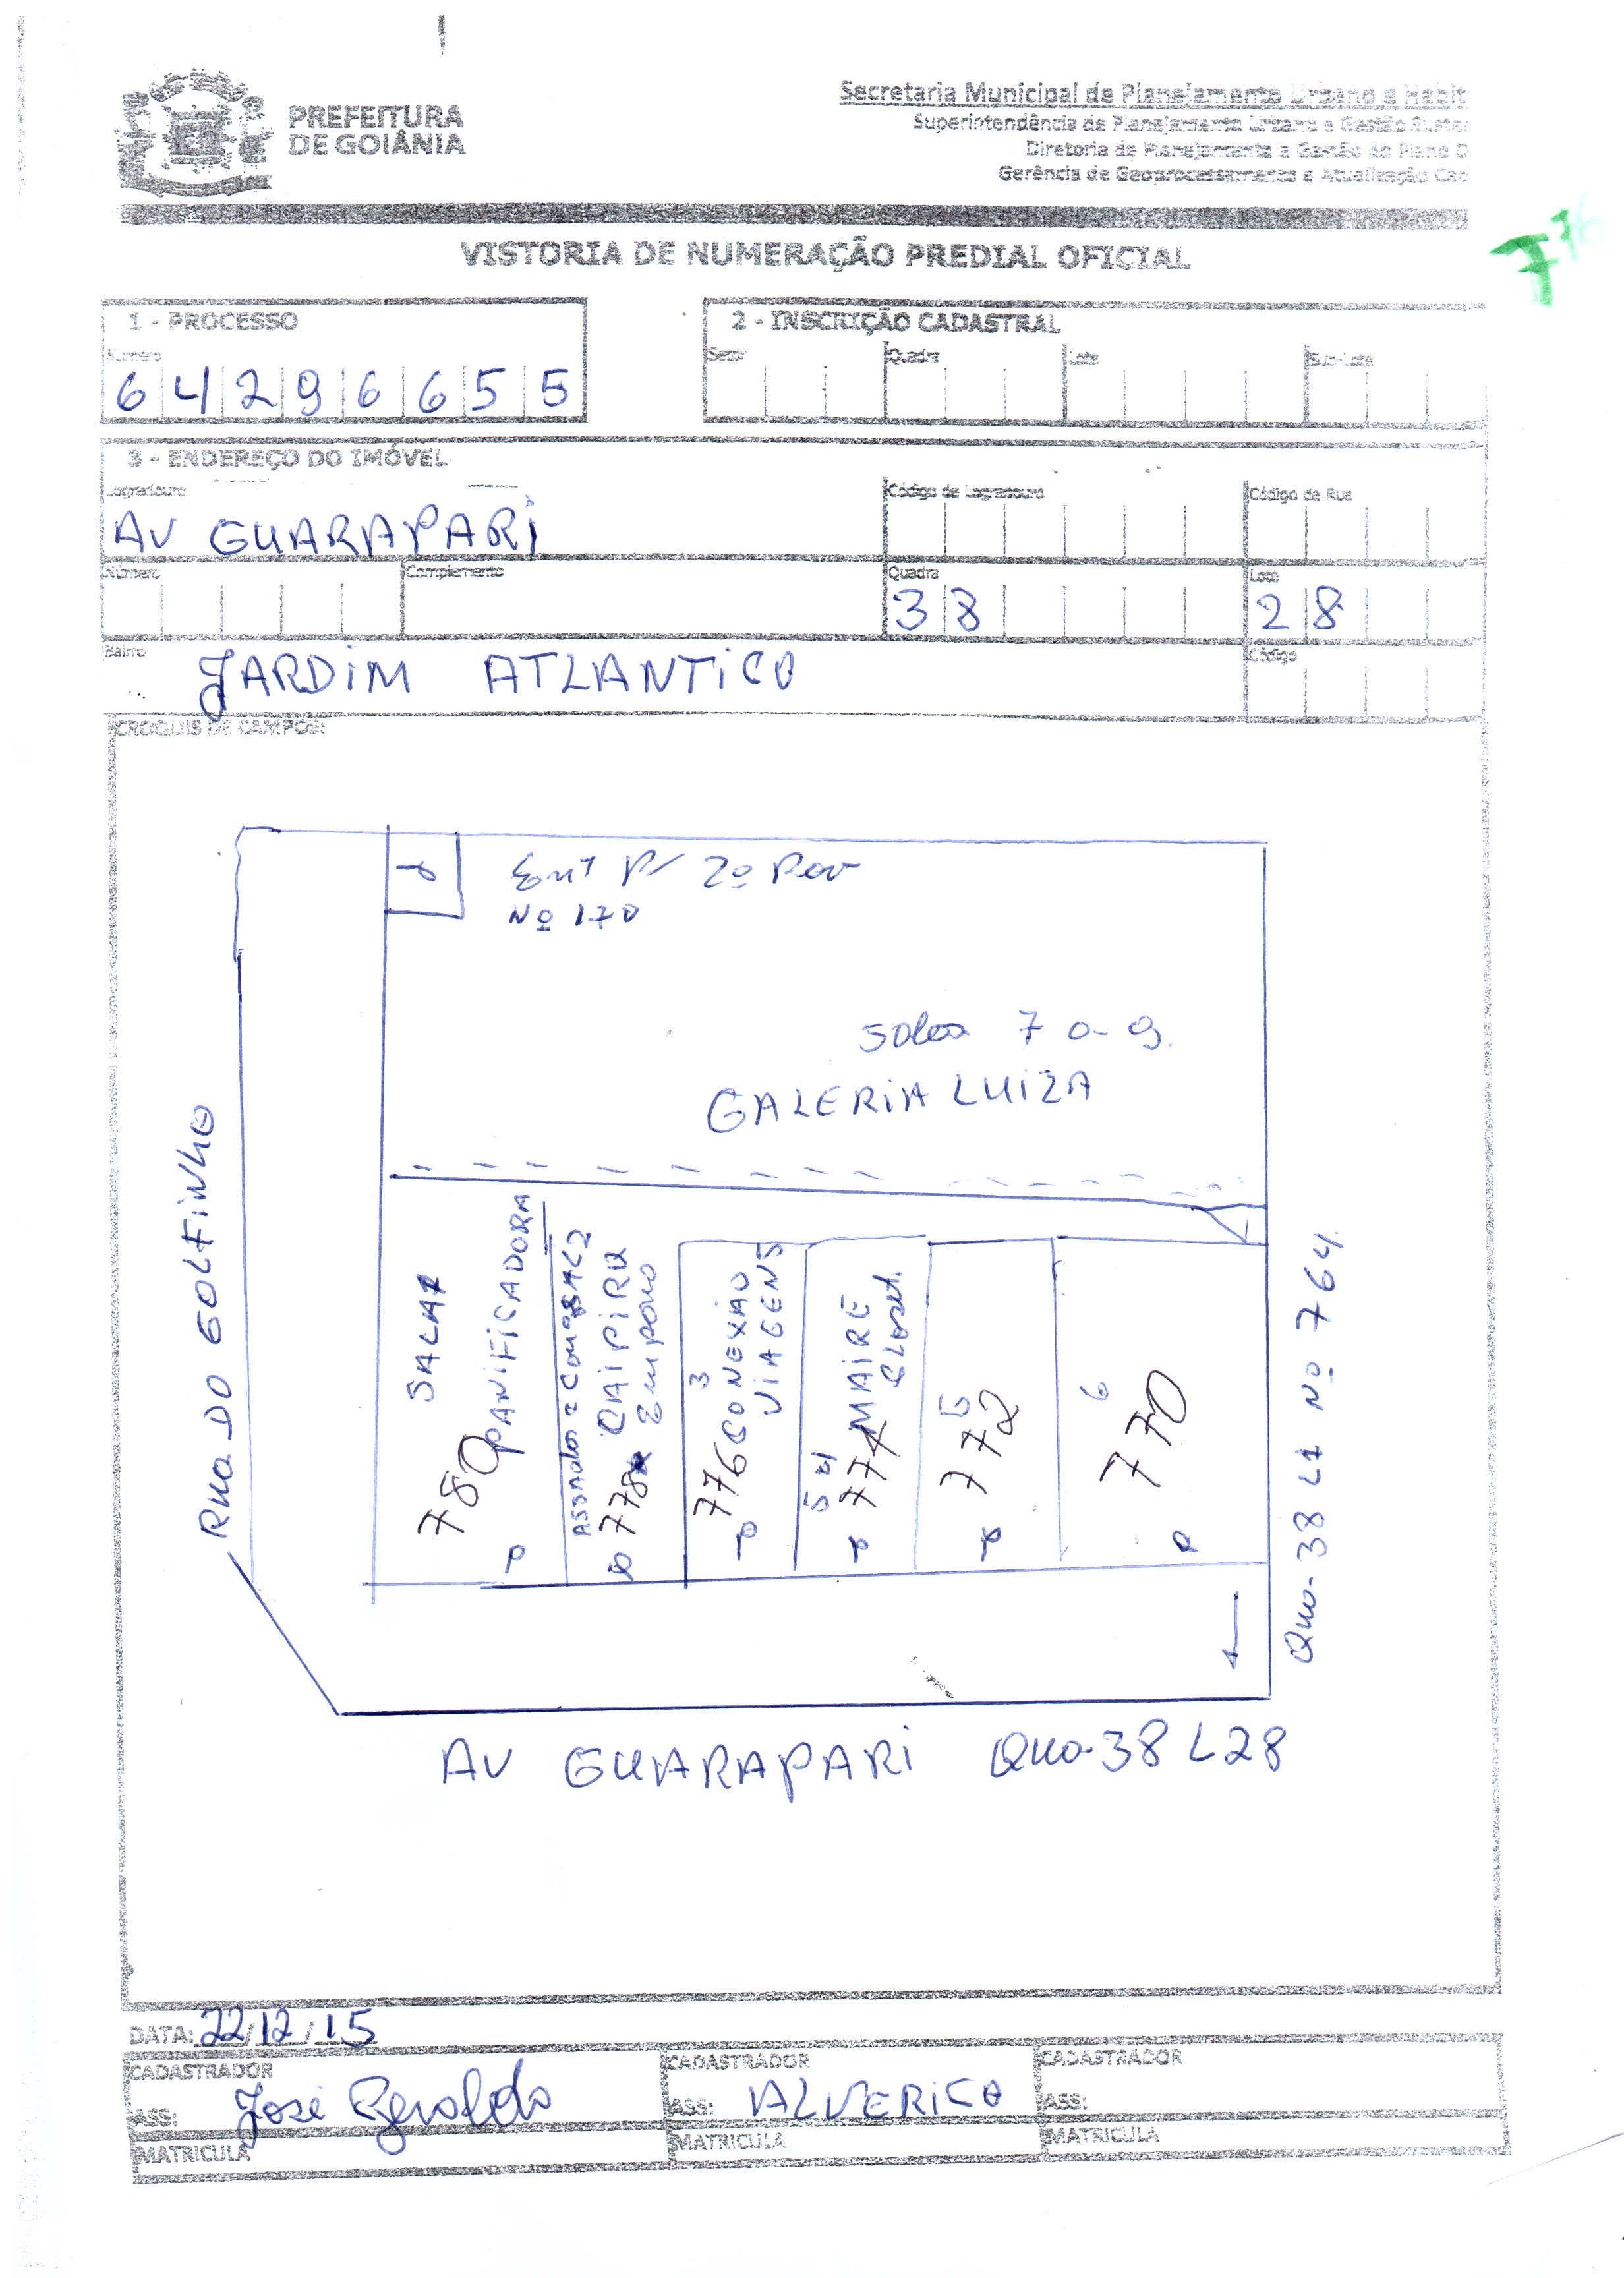 PREFEITURA
DE GOIÂNIA
Secretaria Municipal de Planejamento Urbano e Habit
Superintendência de Planejamento Urbano e Gestão Susten
Diretoria de Planejamento e Gestão do Plano D
Gerência de Geoprocessamento e Atualização Cad
776
VISTORIA DE NUMERAÇÃO PREDIAL OFICIAL
1 - PROCESSO
Número
64296655
2 - INSCRIÇÃO CADASTRAL
Setor Quadra Lote Sub-Lote
3 - ENDEREÇO DO IMÓVEL
Logradouro Código de Logradouro Código de Rua
AV GUARAPARI
Número Complemento Quadra Lote
38 28
Bairro Código
JARDIM ATLANTICO
CROQUIS DE CAMPOS:
Ent P/ 2º Pav
Nº 170
Salas 7 a 9
GALERIA LUIZA
Rua DO GOLFINHO
SALA 1
780 PANIFICADORA
Assados e
CAIPIRA
778 Emporio
3
776 CONEXÃO
VIAGENS
774 MAIRÊ
Closet
5
772
6
770
Qua-38 L1 Nº 764
AV GUARAPARI Qua-38 L28
DATA: 22/12/15
CADASTRADOR CADASTRADOR CADASTRADOR
ASS: José Geraldo ASS: ALVERICO ASS:
MATRICULA MATRICULA MATRICULA